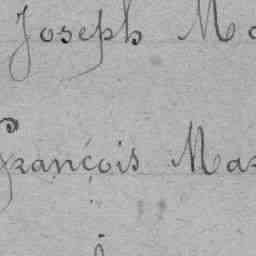 Joseph Ma
François Mar